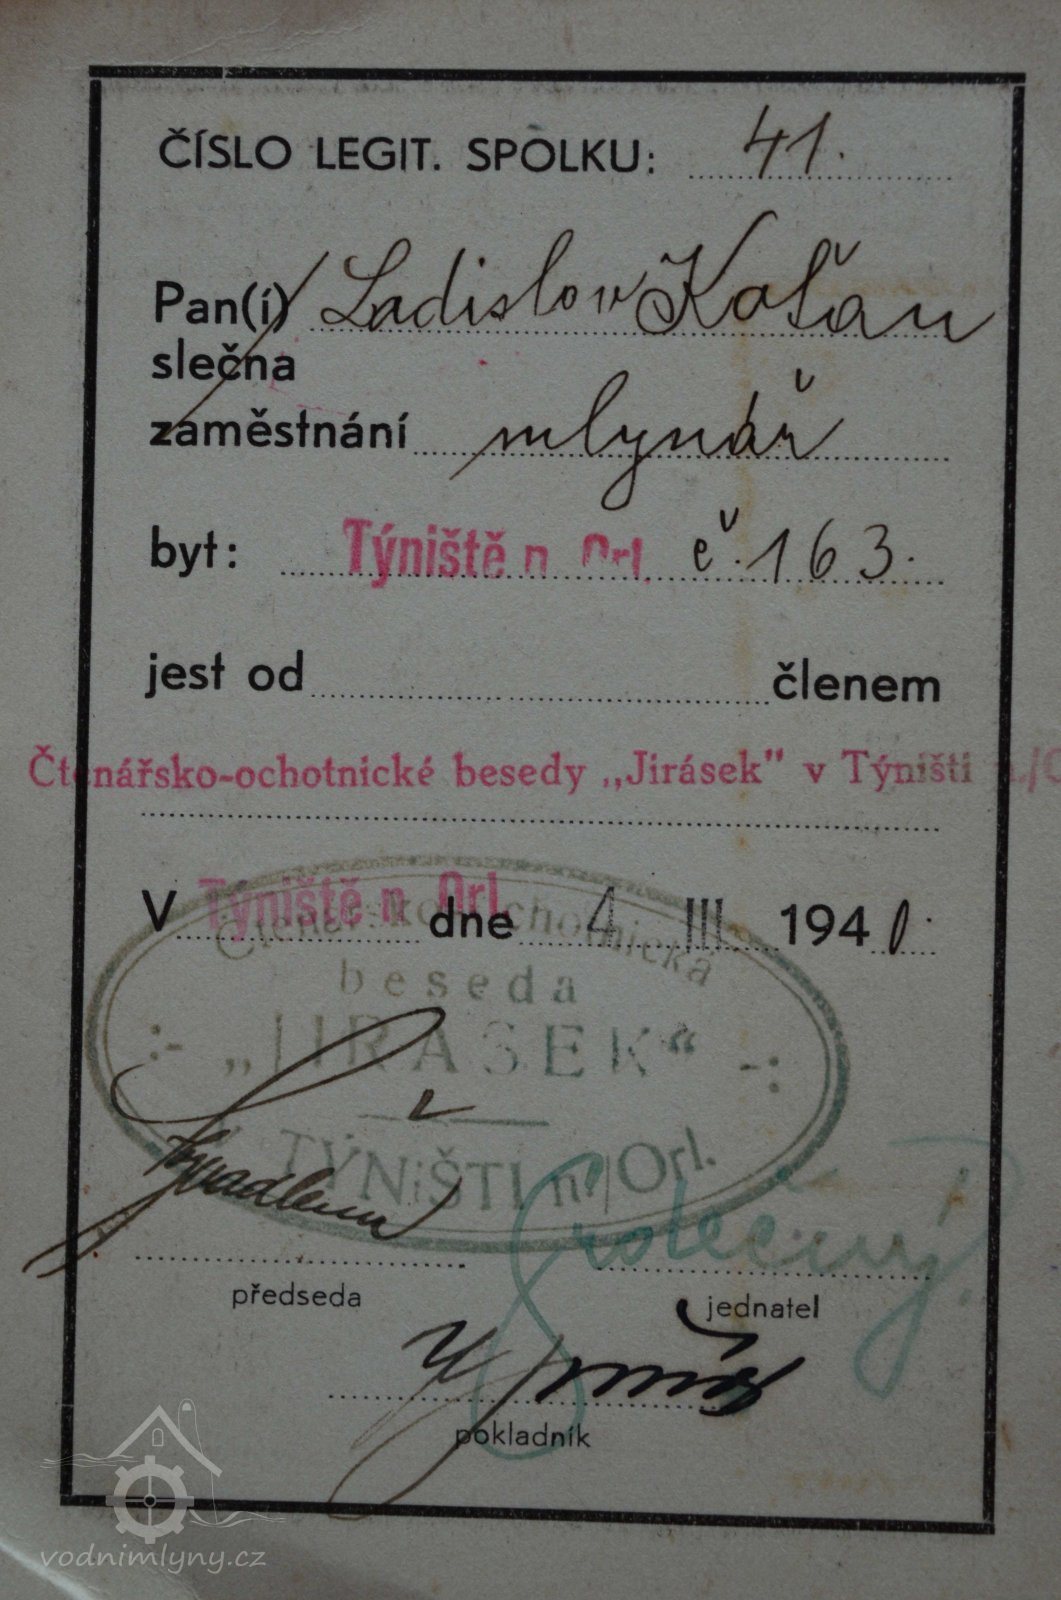 ČÍSLO LEGIT. SPOLKU: 41.
Pan(í) Ladislav Kořán
slečna
zaměstnání mlynář
byt: Týniště n. Orl. č. 163.
jest od členem
Čtenářsko-ochotnické besedy „Jirásek" v Týništi n./O
V Týniště n. Orl. dne 4 III 1940.
Čtenářsko-ochotnická
beseda
„JIRÁSEK“
V TÝNiŠTI n/Orl.
předseda
jednatel
pokladník
vodnimlyny.cz